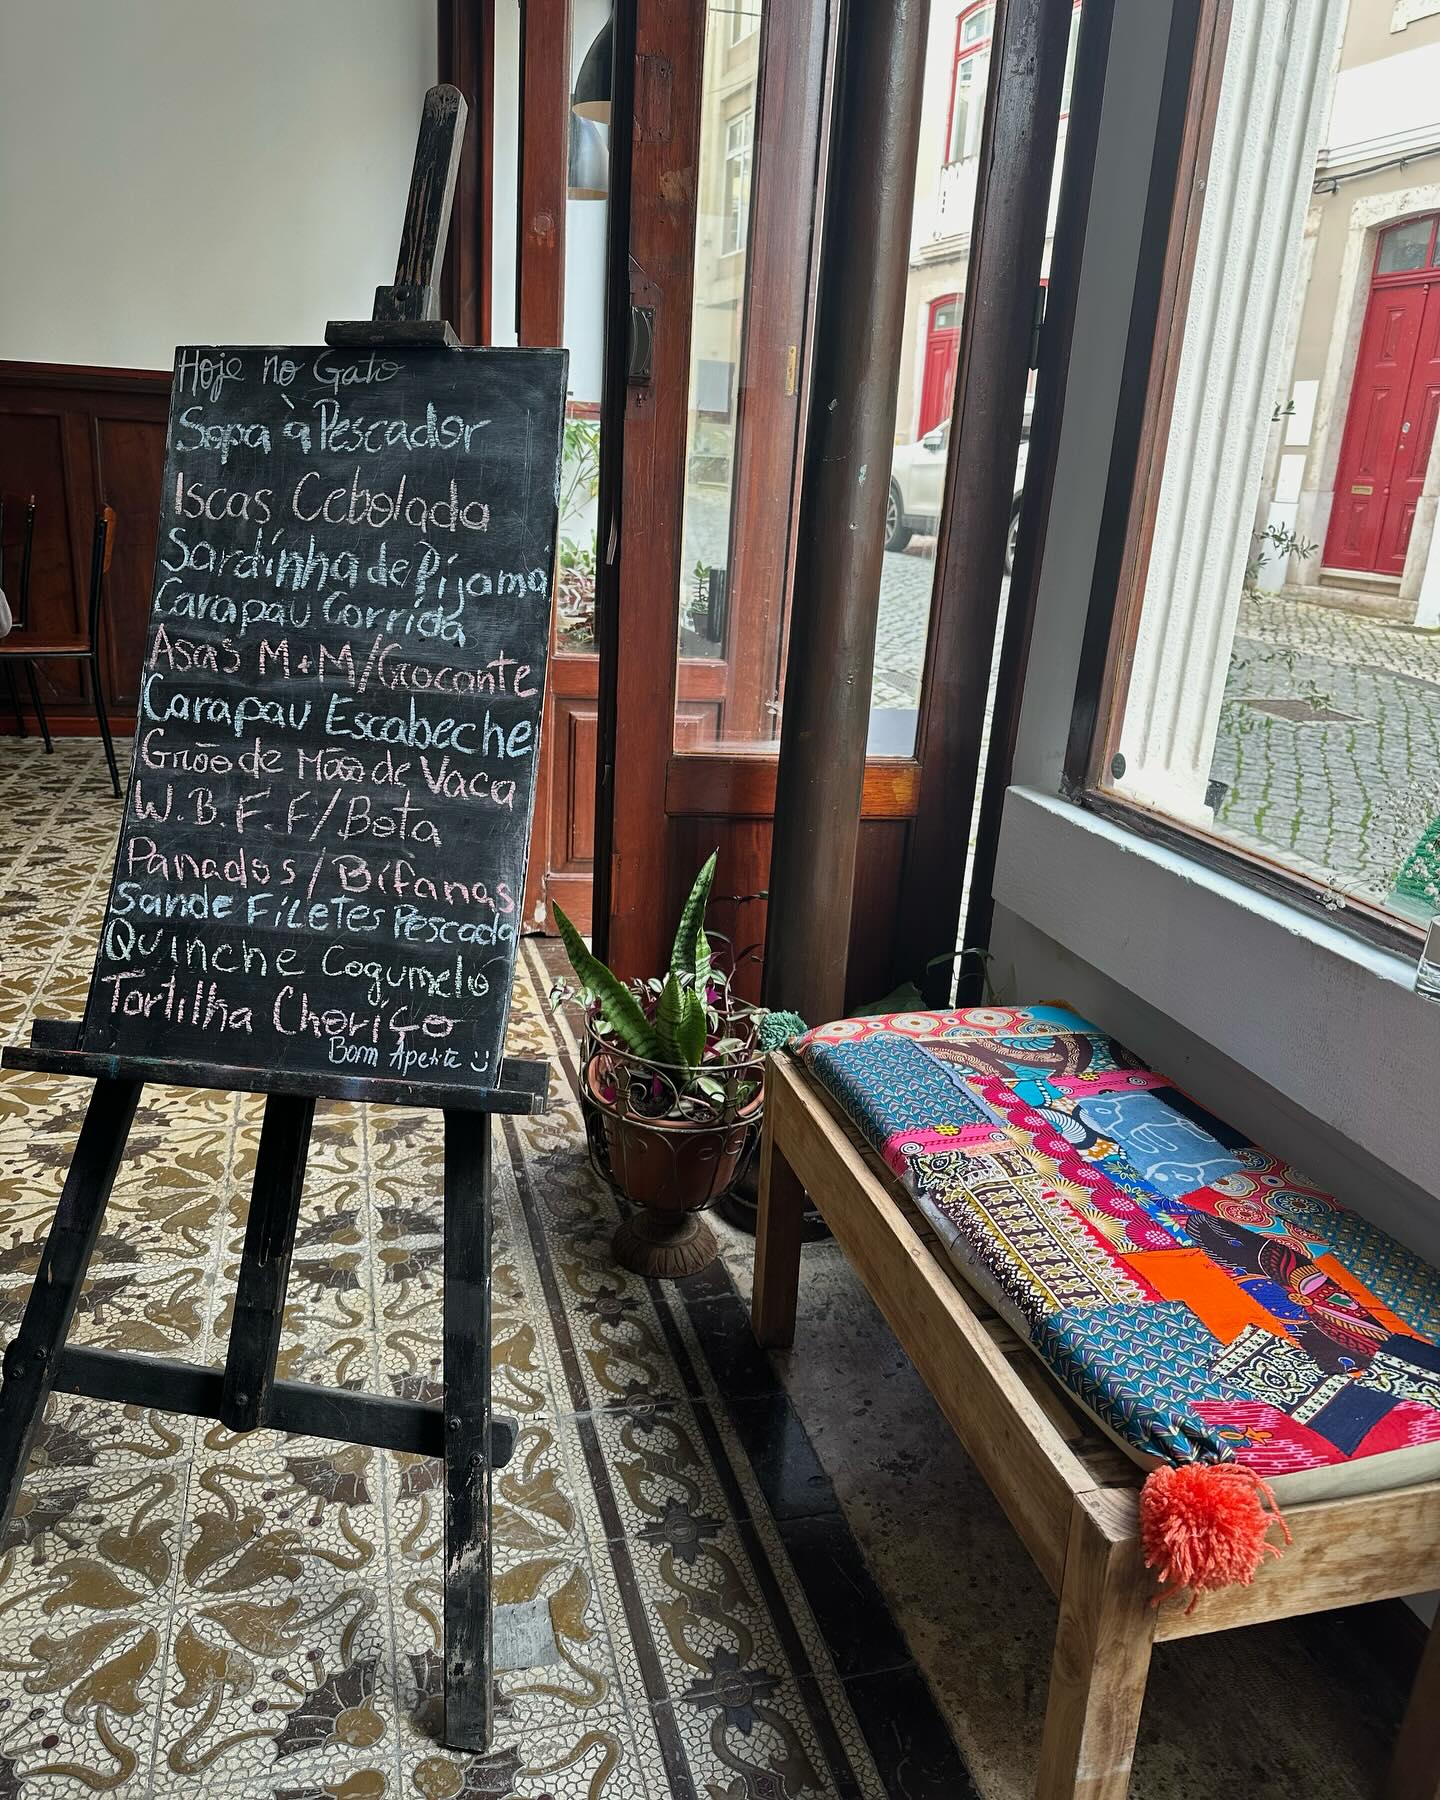 Hoje no Gato
Sopa à Pescador
Iscas Cebolada
Sardinha de Pijama
Carapau Corrida
Asas M+M/Crocante
Carapau Escabeche
Grão de Mão de Vaca
W.B.F.F/Bota
Panados/Bifanas
Sande Filetes Pescada
Quinche Cogumelo
Tortilha Choriço
Bom Apetite